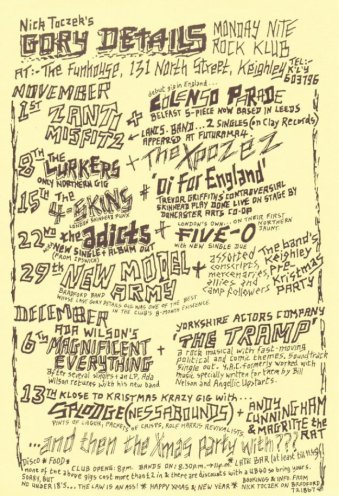 Nick Toczek's
GORY DETAILS
MONDAY NITE
ROCK KLUB
AT:- The Funhouse, 131 North Street, Keighley
TEL:-
K'LY
603796
NOVEMBER
1ST ZANTI
MISFITZ
+
debut gig in England...
COLENSO PARADE
BELFAST 5-PIECE NOW BASED IN LEEDS
LANCS. BAND... 2 SINGLES (on Clay Records)
APPEARED AT FUTURAMA 4
8TH THE LURKERS
ONLY NORTHERN GIG
+ THE XPOZEZ
15TH THE 4-SKINS
+ 'Oi For England'
TREVOR GRIFFITHS' CONTROVERSIAL
SKINHEAD PLAY DONE LIVE ON STAGE BY
DONCASTER ARTS CO-OP
22ND the adicts
NEW SINGLE + ALBUM OUT
(FROM IPSWICH)
+ FIVE-O
LONDON'S OWN... ON THEIR FIRST
NORTHERN
JAUNT
WITH NEW SINGLE DUE
29TH NEW MODEL
ARMY
BRADFORD BAND
WHOSE LAST GORY DETAILS GIG WAS ONE OF THE BEST
IN THE CLUB'S 8-MONTH EXISTENCE
+ assorted
conscripts,
mercenaries,
allies and
camp followers
The band's
Keighley
pre-
Kristmas
PARTY
DECEMBER
6TH ADA WILSON'S
MAGNIFICENT
EVERYTHING
After several singles + an LP, Ada
Wilson returns with his new band
+
YORKSHIRE ACTORS COMPANY
'THE TRAMP'
a rock musical with fast-moving
political and comic themes. Soundtrack
single out. Y.A.C. formerly worked with
music specially written for them by Bill
Nelson and Angelic Upstarts.
13TH KLOSE TO KRISTMAS KRAZY GIG WITH...
SPLODGE(NESSABOUNDS)
PINTS OF LAGER, PACKETS OF CRISPS, ROLF HARRIS REVIVALISTS
+ ANDY
CUNNINGHAM
& MAGRITTE THE
RAT
...and then the Xmas party with???
DISCO * FOOD *
CLUB OPENS: 8pm. BANDS ON: 8.30pm. → 11pm. * LATE BAR (LICENSED)
none of the above gigs cost more than £2 in & there are discounts with UB40 so bring yours.
SORRY, BUT
NO UNDER 18'S... THE LAW IS AN ASS! * HAPPY XMAS & NEW YEAR *
BOOKINGS & INFO. FROM
NICK TOCZEK ON BRADFORD